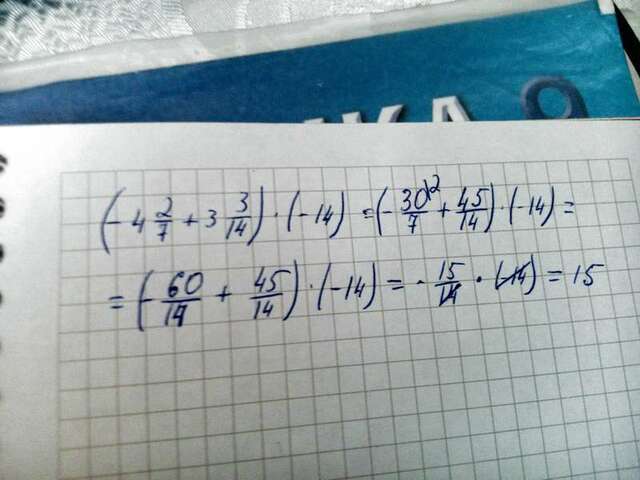 КА 9
(-4 2/7 + 3 3/14) · (-14) = (- 30²/7 + 45/14) · (-14) =
= (- 60/14 + 45/14) · (-14) = - 15/14 · (-14) = 15